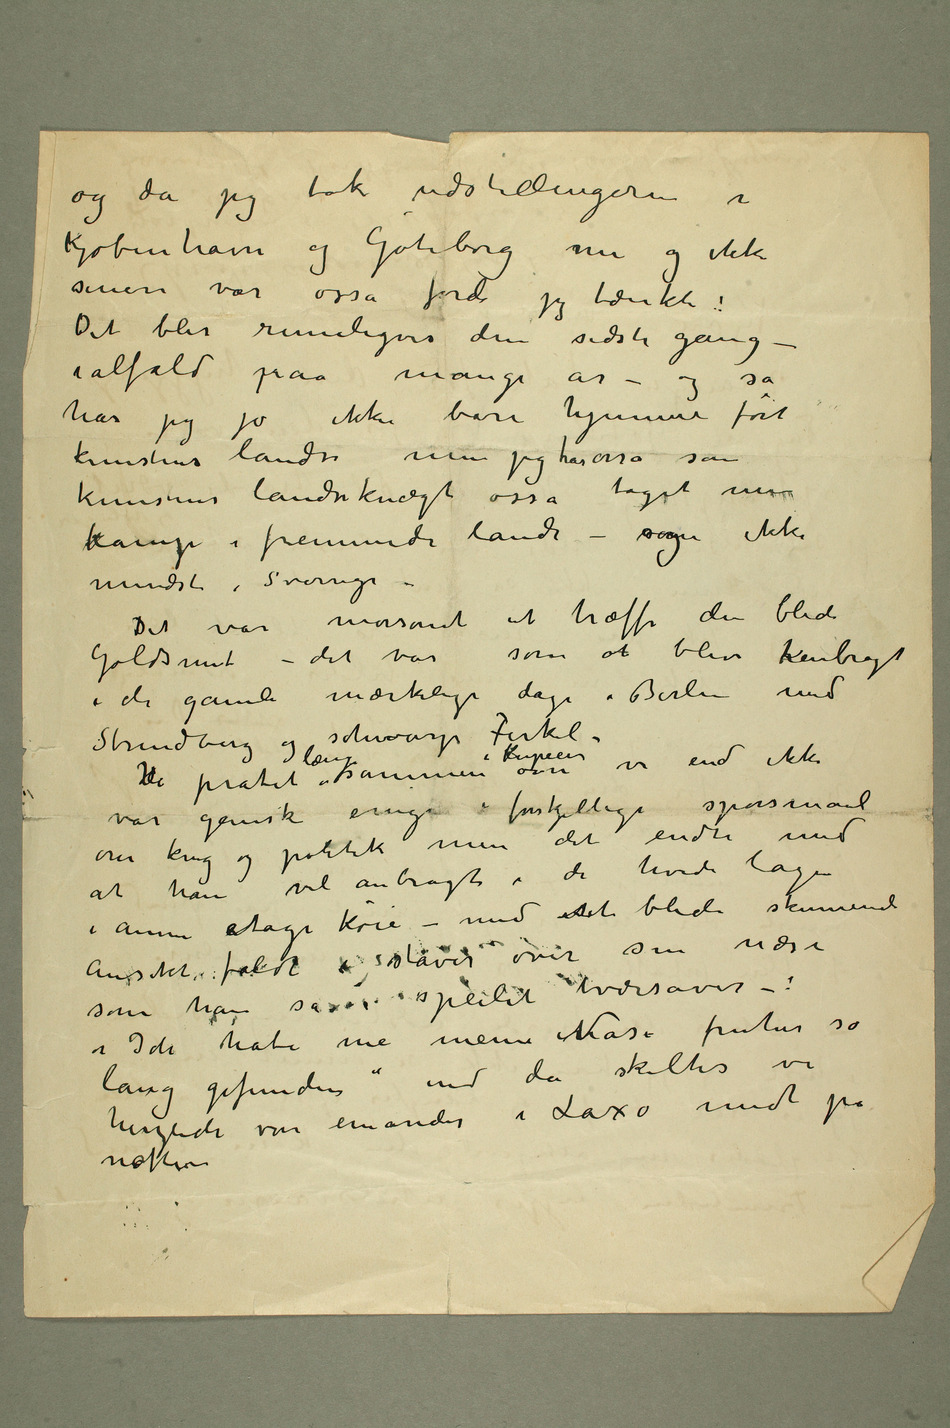 og da jeg tok udstillingerne i
Kjøbenhavn og Gøteborg nu og ikke
senere var osså fordi jeg tænkte:
Det blir rimeligvis den sidste gang –
ialfald paa mange år – og så
har jeg jo ikke bare hjemme ført
kunstens landse men jeg har osså som
kunstens landsknægt osså taget min
kamp i fremmede lande – og ikke
mindst i Sverrige –
Det var morsomt at træffe den blide
Goldsmit – det var som at blive henbragt
i de gamle mærkelige dage i Berlin med
Strindberg og schwarze Ferkel –
Vi pratet længe sammen i Kupeen om vi end ikke
var ganske enige i forskjellige spørsmaal
over krig og politik men det endte med
at han vel anbragt i de hvide lagen
i annen etage køie – med det blide skinnende
ansikt faldt i staver over sin næse
som han så i speilet tværsover – :
„Ich habe nie meine Nase früher so
lang gefunden“ und da skiltes vi
herzlich von einander i Laxo midt på
natten